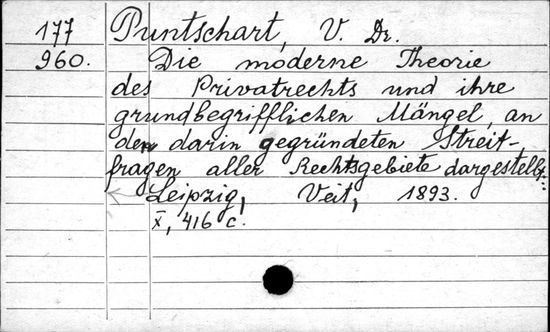 177 Puntschart, V. Dr.
960. Die moderne Theorie
des Privatrechts und ihre
grundbegrifflichen Mängel, an
den darin gegründeten Streit-
fragen aller Rechtsgebiete dargestellt.
Leipzig, Veit, 1893.
X, 416 c.